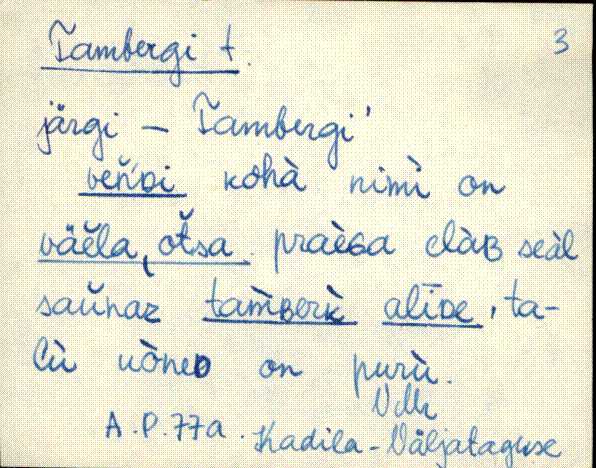 Tambergi t. 3
järgi — Tambergi'
veňɴ̀ɪ kohà nimì on
väĕla, otšsa. praèɢa elàʙ seàl
saŭnaz tam̀ʙerk̀ alīᴅe, ta-
lù uònᴇᴅ on purù.
VMr
A.P. 77a. Kadila - Väljataguse